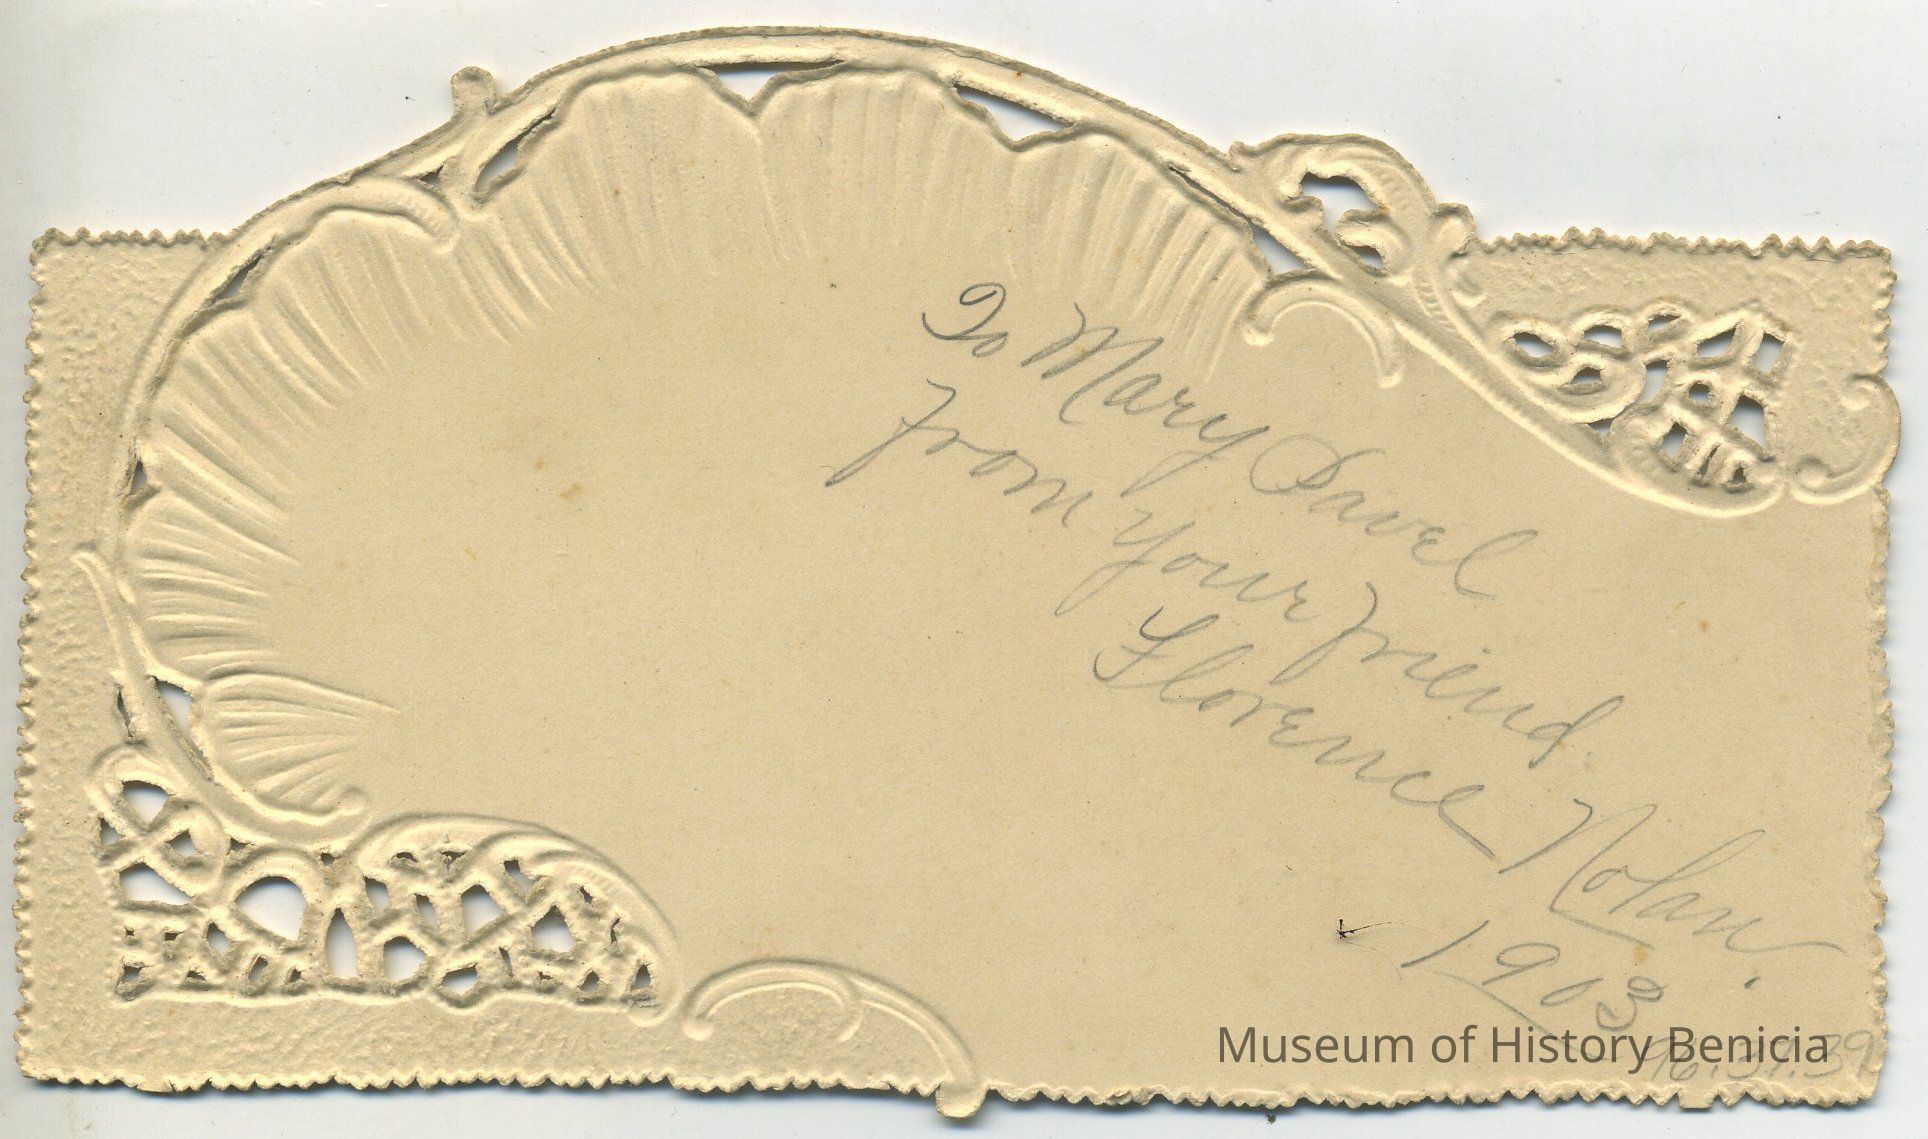 To Mary Pavel
From Your friend.
Florence Nolan.
1903
Museum of History Benicia
96.37.39